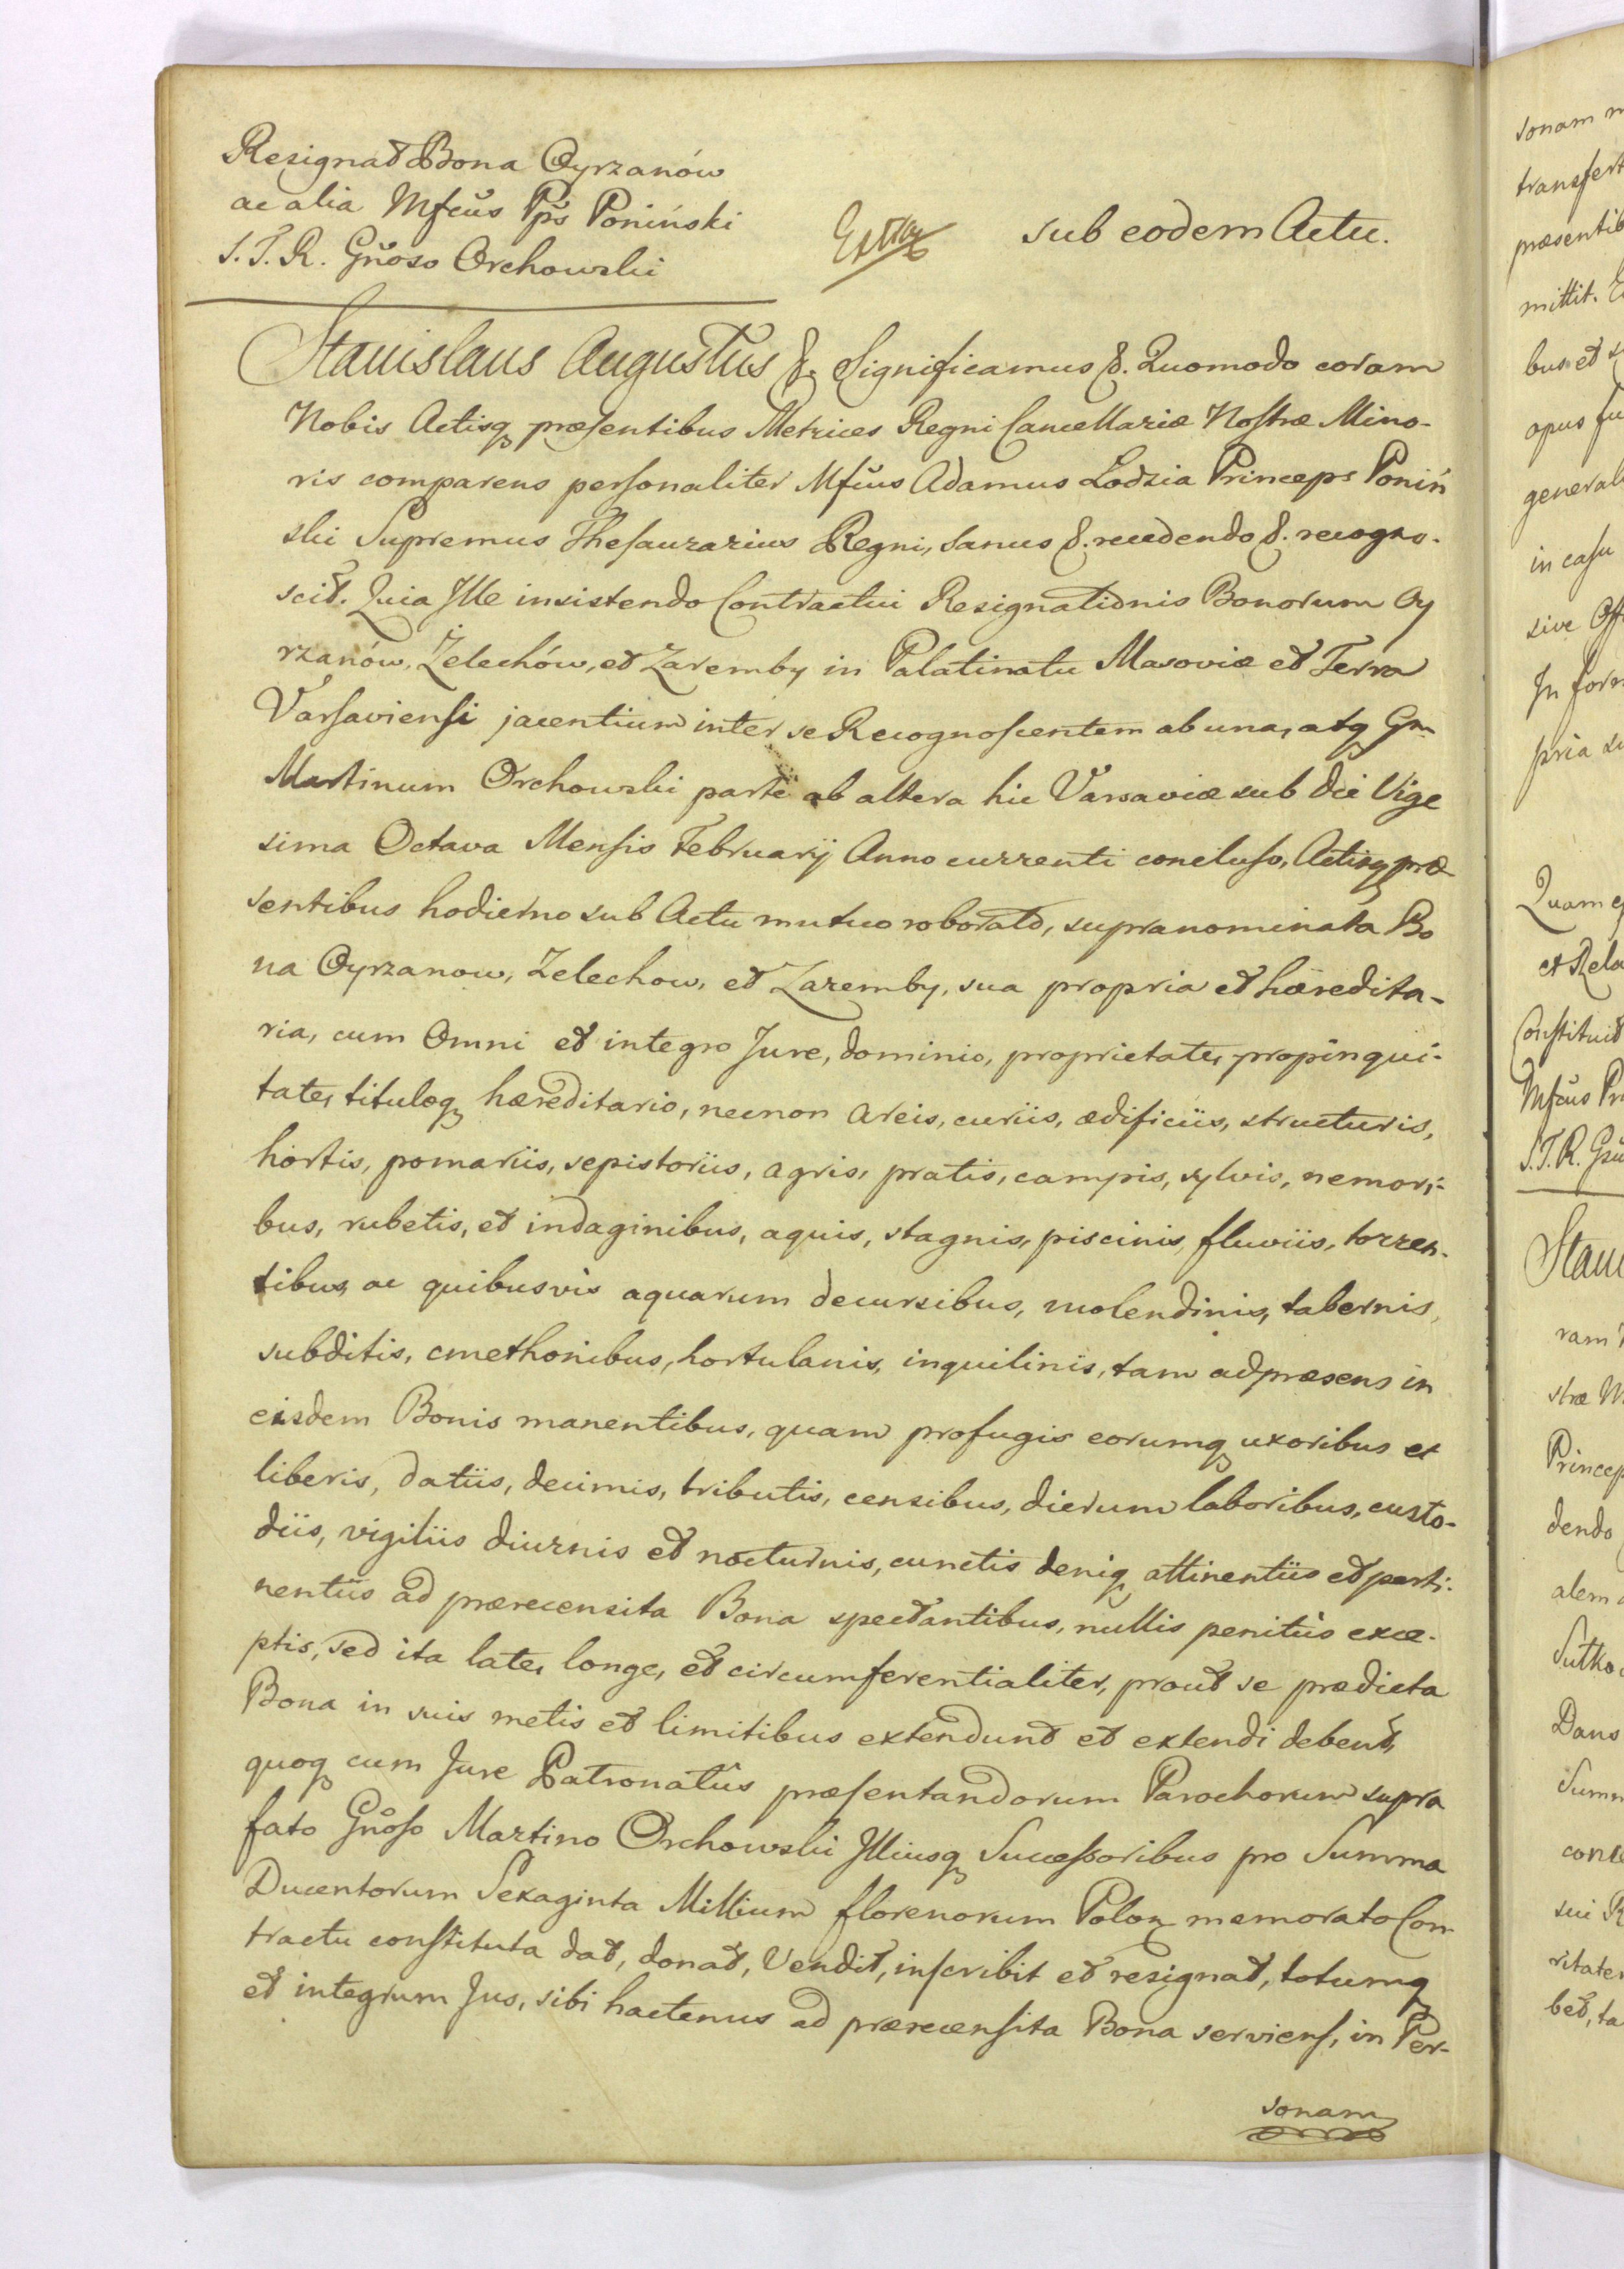 Resignat Bona Oyrzanów
ac alia Mfcus Pps Poniński
S. T. R. Gnoso Orchowski
Extra
sub eodem Actu.
Stanislaus Augustus &. Significamus &. Quomodo coram
Nobis Actisq præsentibus Metrices Regni Cancellariæ Nostræ Mino-
ris comparens personaliter Mfcus Adamus Lodzia Princeps Poniń
ski Supremus Thesaurarius Regni, sanus &. recedendo &. recogno-
scit. Quia Ille insistendo Contractui Resignationis Bonorum Oy
rzanów, Żelechów, et Zaremby in Palatinatu Masoviæ et Terra
Varsaviensi jacentium inter se Recognoscentem ab una, atq Gm
Martinum Orchowski parte ab altera hic Varsaviæ sub die Vige
sima Octava Mensis Februarij Anno currenti concluso, Actisq præ
sentibus hodierno sub Actu mutuo roborato, supranominata Bo
na Oyrzanow, Zelechow, et Zaremby, sua propria et hæredita-
ria, cum Omni et integro Jure, dominio, proprietate, propinqui-
tate, tituloq hæreditario, necnon areis, curiis, ædificiis, structuris,
hortis, pomariis, sepistoriis, agris, pratis, campis, sylvis, nemori-
bus, rubetis, et indaginibus, aquis, stagnis, piscinis, fluviis, torren-
tibus, ac quibusvis aquarum decursibus, molendinis, tabernis,
subditis, cmethonibus, hortulanis, inquilinis, tam ad præsens in
eisdem Bonis manentibus, quam profugis eorumq uxoribus et
liberis, datiis, decimis, tributis, censibus, dierum laboribus, custo-
diis, vigiliis diurnis et nocturnis, cunctis deniq attinentiis et perti-
nentiis ad prærecensita Bona spectantibus, nullis penitus exce-
ptis, sed ita late, longe, et circumferentialiter, prout se prædicta
Bona in suis metis et limitibus extendunt et extendi debent,
quoq cum Jure Patronatûs præsentandorum Parochorum supra
fato Gnoso Martino Orchowski Illiusq Successoribus pro Summa
Ducentorum Sexaginta Millium florenorum Polon memorato Con
tractu constituta dat, donat, Vendit, inscribit et resignat, totumq
et integrum Jus, sibi hactenus ad prærecensita Bona serviens, in Per-
sonam
sonam
transfert
præsentib
mittit.
bus et
opus fu
general
in casu
sive Off
In form
pria
Quam
et Rela
Constituit
Mfcus Pr
S. T. R. Gn
Stani
ram
stræ M
Princep
dendo
alem
Sutko
Dans
Summ
conc
sui R
ritate
bet, ta